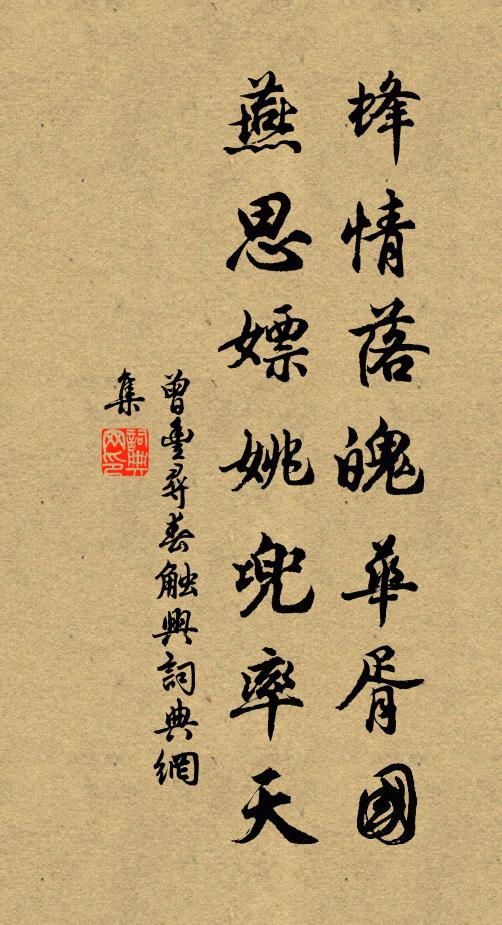 蜂情落魄華胥國
燕思嫖姚兜率天
曾豐尋春触興詞典網
集
詞典網印